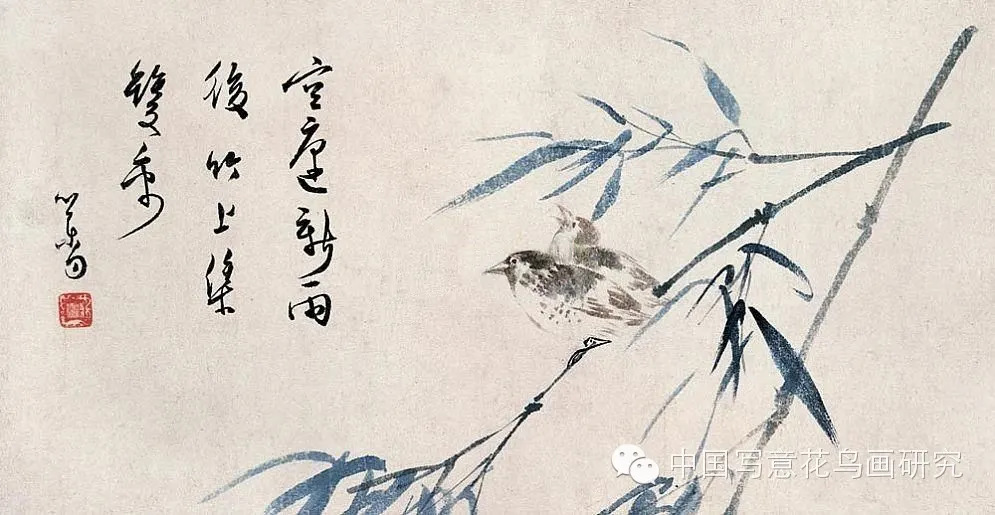 空庭新雨
後竹上集
雙禽
心畬
中国写意花鸟画研究